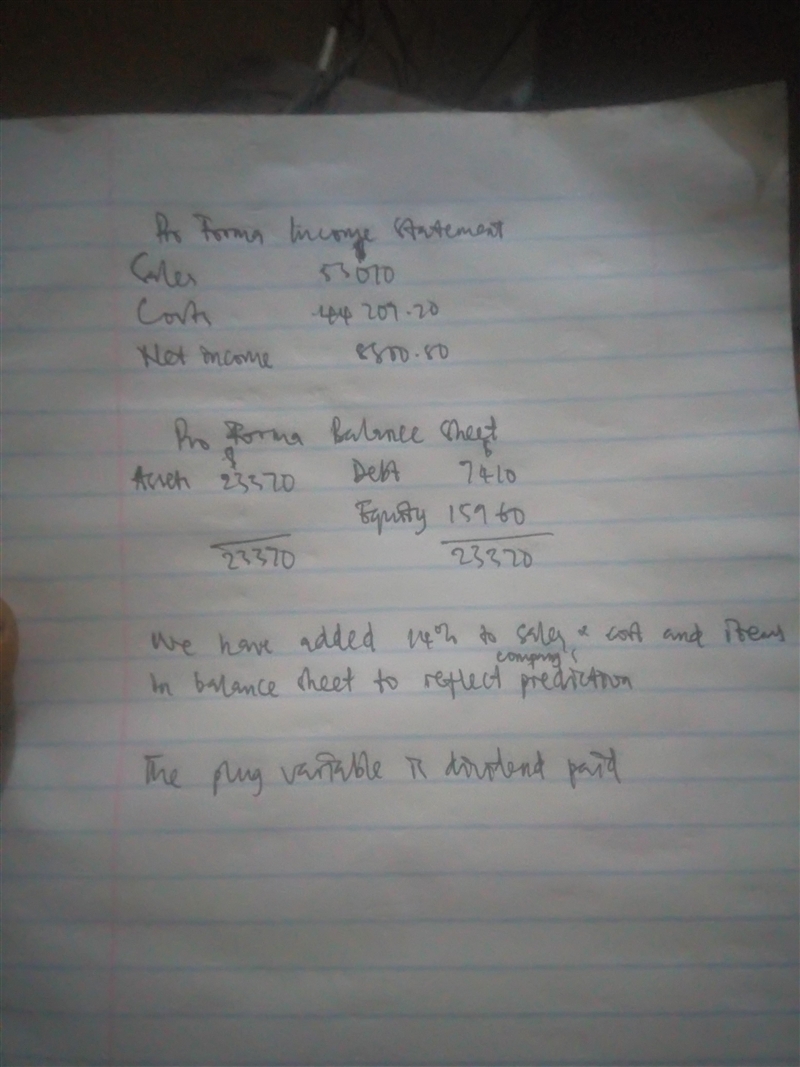 Pro Forma Income Statement
Sales 53070
Costs 44209.20
Net income 8800.80
Pro Forma Balance Sheet
Assets 23370 Debt 7410
Equity 15960
23370 23370
We have added 14% to sales & cost and items
in balance sheet to reflect company's prediction
The plug variable is dividend paid